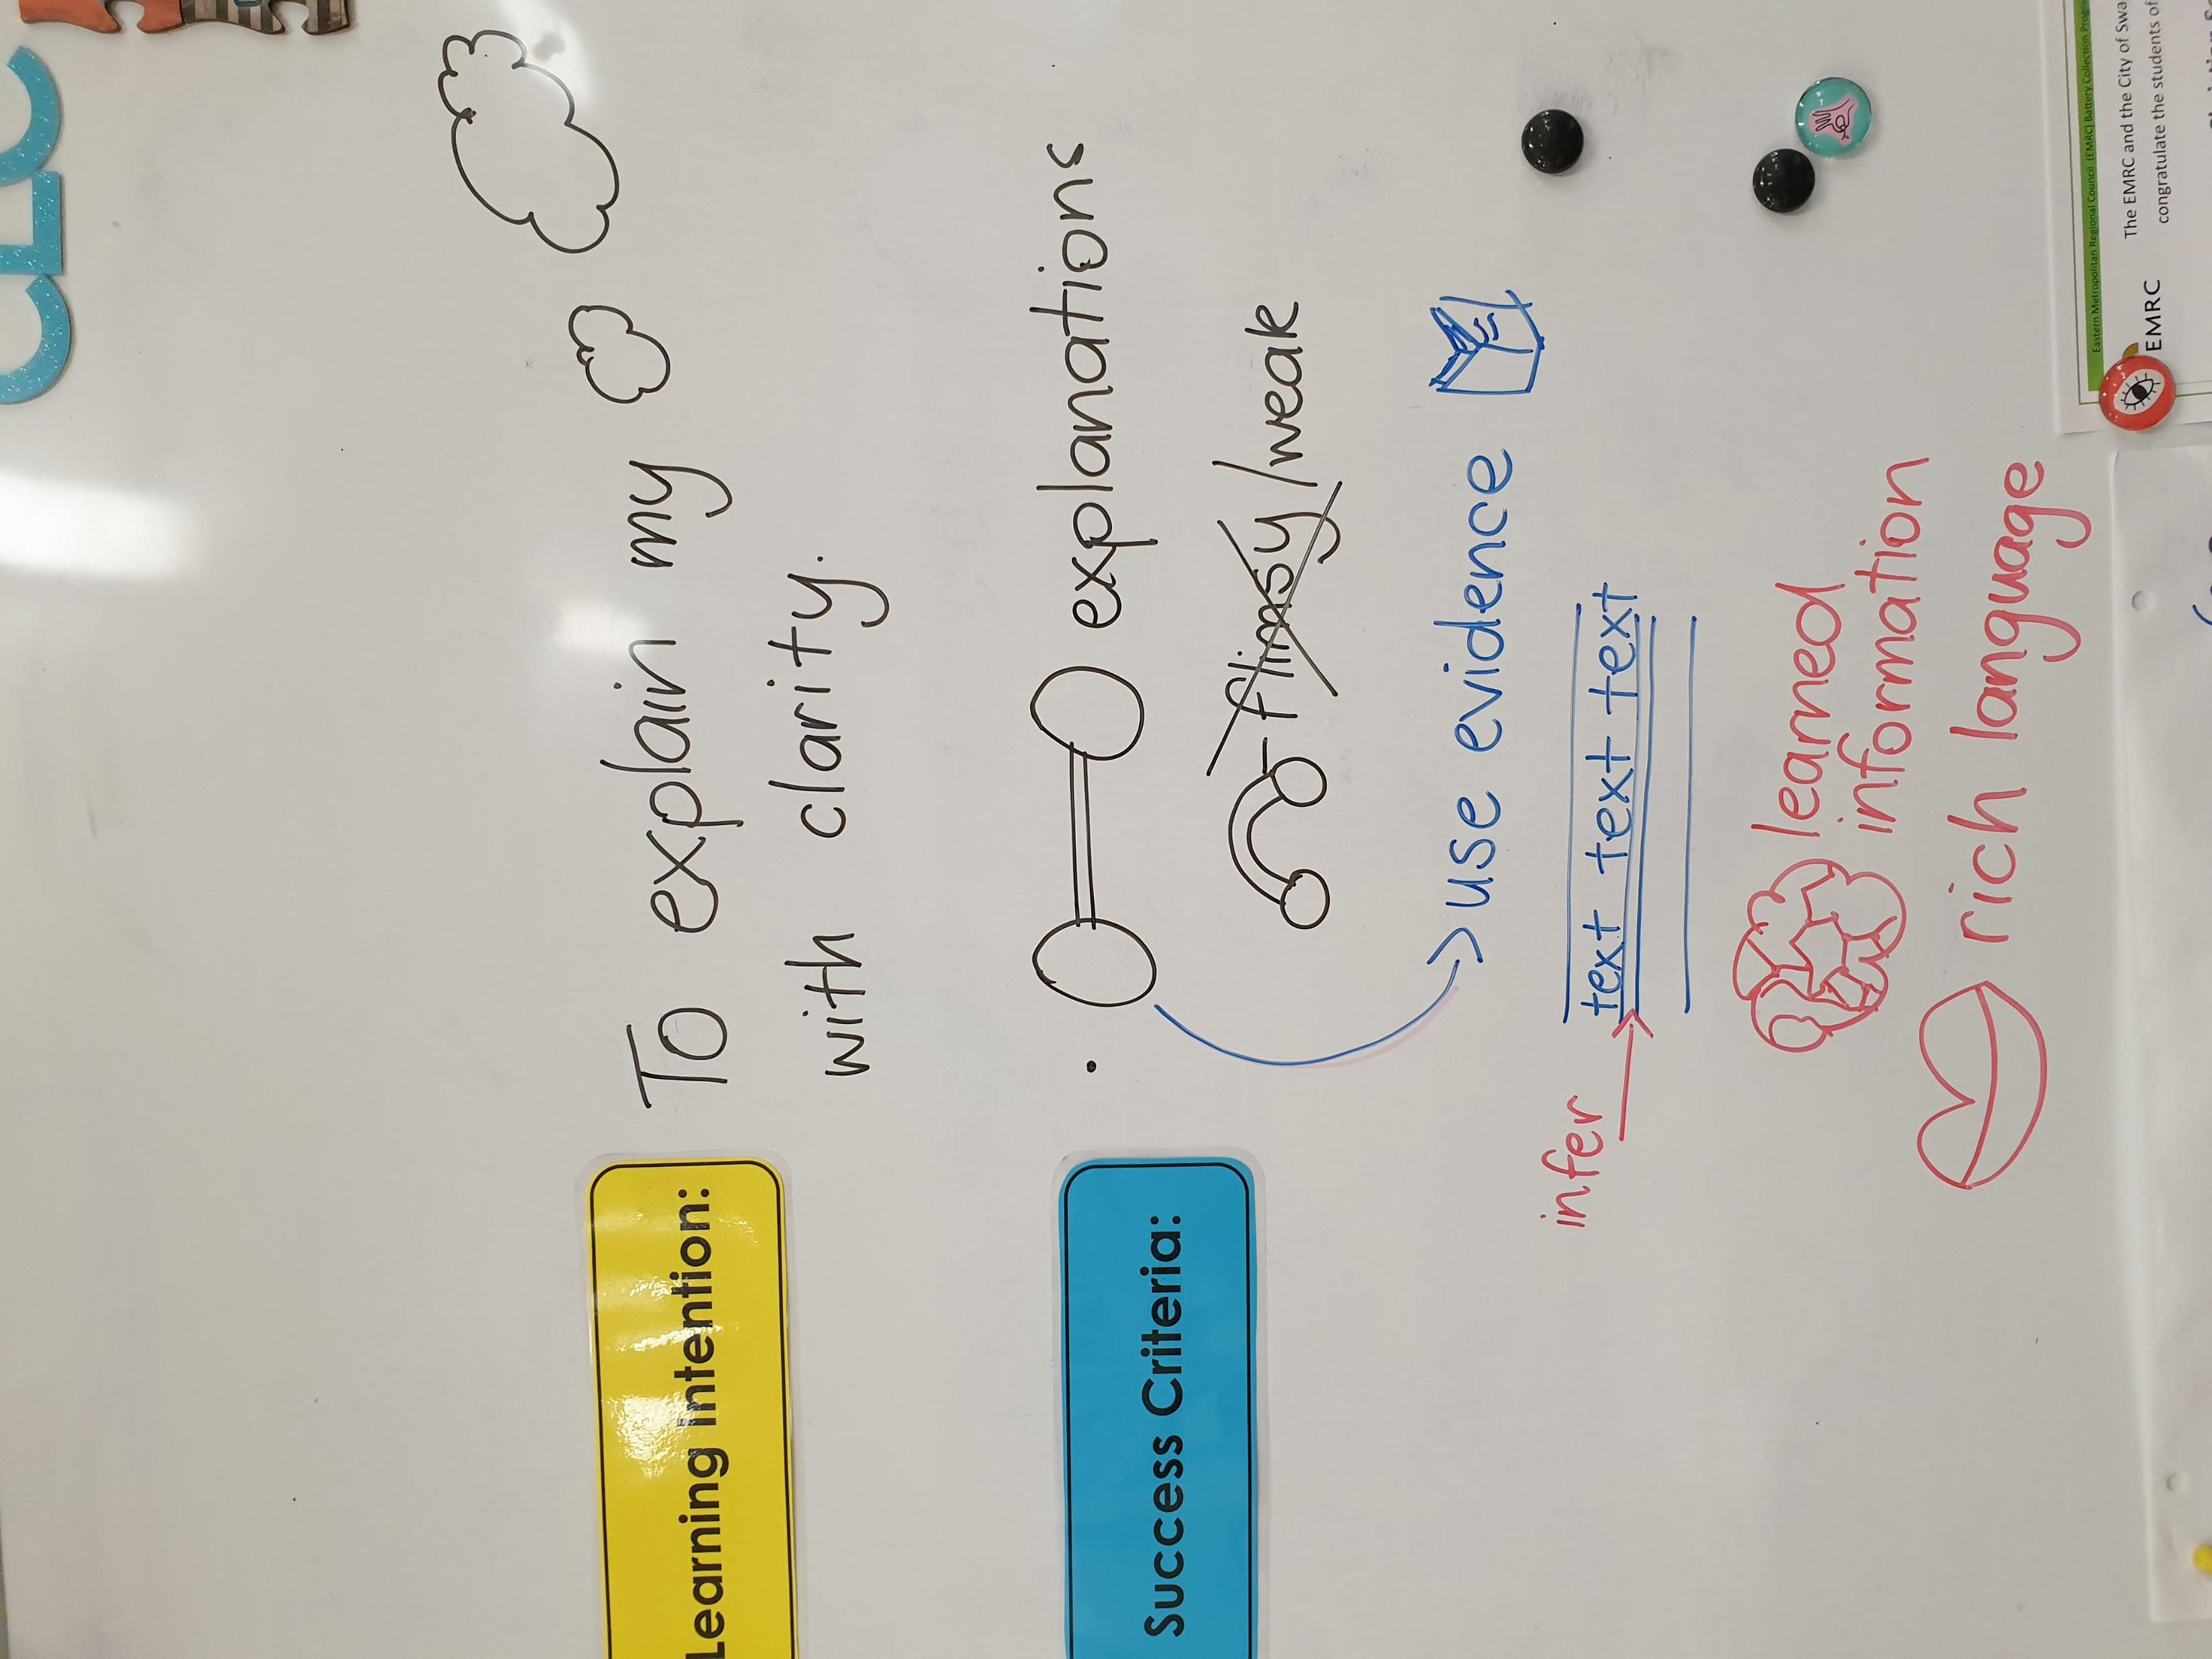 CLC
Learning Intention:
To explain my
with clarity.
Success Criteria:
• explanations
- flimsy/weak
use evidence
infer
text text text text
learned
information
rich language
Eastern Metropolitan Regional Council (EMRC) Battery Collection
The EMRC and the City of
congratulate the students of
EMRC